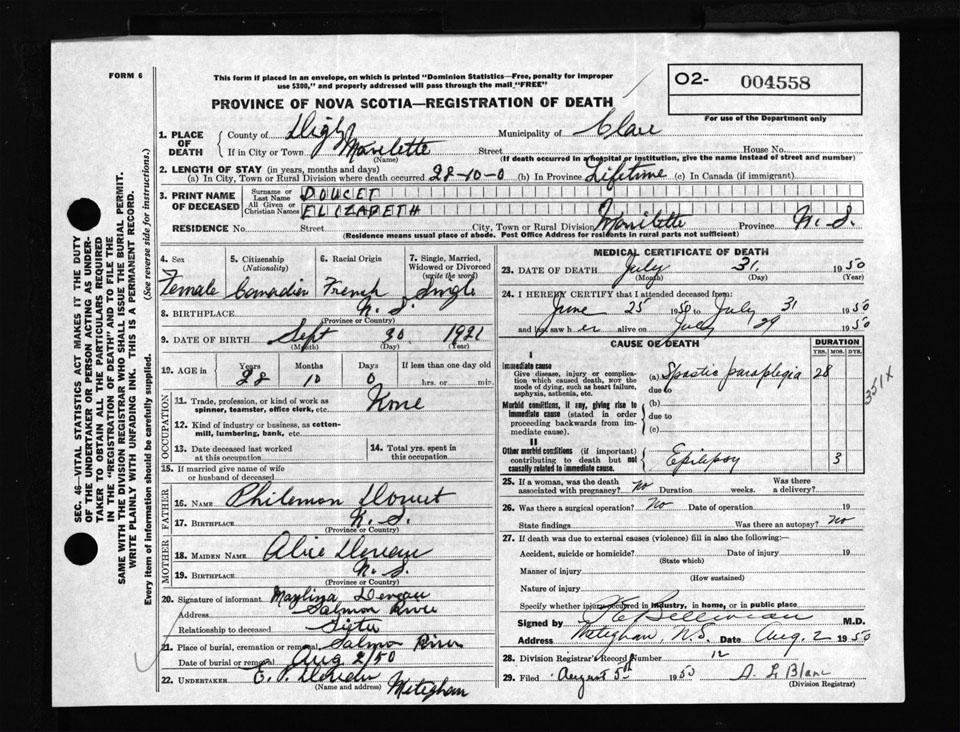 FORM 6
This form if placed in an envelope, on which is printed "Dominion Statistics—Free, penalty for improper
use $300," and properly addressed will pass through the mail "FREE"
O2- 004558
PROVINCE OF NOVA SCOTIA—REGISTRATION OF DEATH
For use of the Department only
1. PLACE OF DEATH
County of Digby Municipality of Clare
If in City or Town Mavilette Street House No.
(Name) (If death occurred in a hospital or institution, give the name instead of street and number)
2. LENGTH OF STAY (in years, months and days)
(a) In City, Town or Rural Division where death occurred 28-10-0 (b) In Province Lifetime (c) In Canada (if immigrant)
3. PRINT NAME OF DECEASED
Surname or Last Name DOUCET
All Given or Christian Names ELIZABETH
RESIDENCE No. Street City, Town or Rural Division Mavilette Province N. S.
(Residence means usual place of abode. Post Office Address for residents in rural parts not sufficient)
4. Sex 5. Citizenship (Nationality) 6. Racial Origin 7. Single, Married, Widowed or Divorced (write the word)
Female Canadian French Single
8. BIRTHPLACE N. S.
(Province or Country)
9. DATE OF BIRTH Sept 30 1921
(Month) (Day) (Year)
10. AGE in Years Months Days If less than one day old
28 10 0 hrs. or min.
OCCUPATION
11. Trade, profession, or kind of work as spinner, teamster, office clerk, etc.
12. Kind of industry or business, as cotton-mill, lumbering, bank, etc.
13. Date deceased last worked at this occupation
14. Total yrs. spent in this occupation
15. If married give name of wife or husband of deceased
FATHER
16. NAME Philemon Doucet
17. BIRTHPLACE N. S.
(Province or Country)
MOTHER
18. MAIDEN NAME Alice
19. BIRTHPLACE N. S.
(Province or Country)
20. Signature of informant Deveau
Address Salmon River
Relationship to deceased Sister
21. Place of burial, cremation or removal Salmon River
Date of burial or removal Aug 2/50
22. UNDERTAKER Meteghan
(Name and address)
MEDICAL CERTIFICATE OF DEATH
23. DATE OF DEATH July 31, 1950
(Month) (Day) (Year)
24. I HEREBY CERTIFY that I attended deceased from:
June 25 1950 to July 31 1950
and last saw h er alive on July 29 1950
CAUSE OF DEATH DURATION
YRS. MOS. DYS.
I
Immediate cause
Give disease, injury or complication which caused death, NOT the mode of dying, such as heart failure, asphyxia, asthenia, etc.
(a) Spastic paraplegia 28
due to
351X
Morbid conditions, if any, giving rise to immediate cause (stated in order proceeding backwards from immediate cause).
(b)
due to
(c)
II
Other morbid conditions (if important) contributing to death but not causally related to immediate cause.
Epilepsy 3
25. If a woman, was the death associated with pregnancy? No Duration weeks. Was there a delivery?
26. Was there a surgical operation? No Date of operation 19
State findings Was there an autopsy? No
27. If death was due to external causes (violence) fill in also the following:—
Accident, suicide or homicide? Date of injury 19
(State which)
Manner of injury
(How sustained)
Nature of injury
Specify whether injury occurred in industry, in home, or in public place
Signed by M.D.
Address Meteghan, N.S. Date Aug. 2 1950
28. Division Registrar's Record Number 12
29. Filed August 5th 1950 A. L. Blanc
(Division Registrar)
SEC. 46—VITAL STATISTICS ACT MAKES IT THE DUTY
OF THE UNDERTAKER OR PERSON ACTING AS UNDER-
TAKER TO OBTAIN ALL THE PARTICULARS REQUIRED
IN THE "REGISTRATION OF DEATH" AND TO FILE THE
SAME WITH THE DIVISION REGISTRAR WHO SHALL ISSUE THE BURIAL PERMIT.
WRITE PLAINLY WITH UNFADING INK. THIS IS A PERMANENT RECORD.
Every item of information should be carefully supplied. (See reverse side for instructions.)